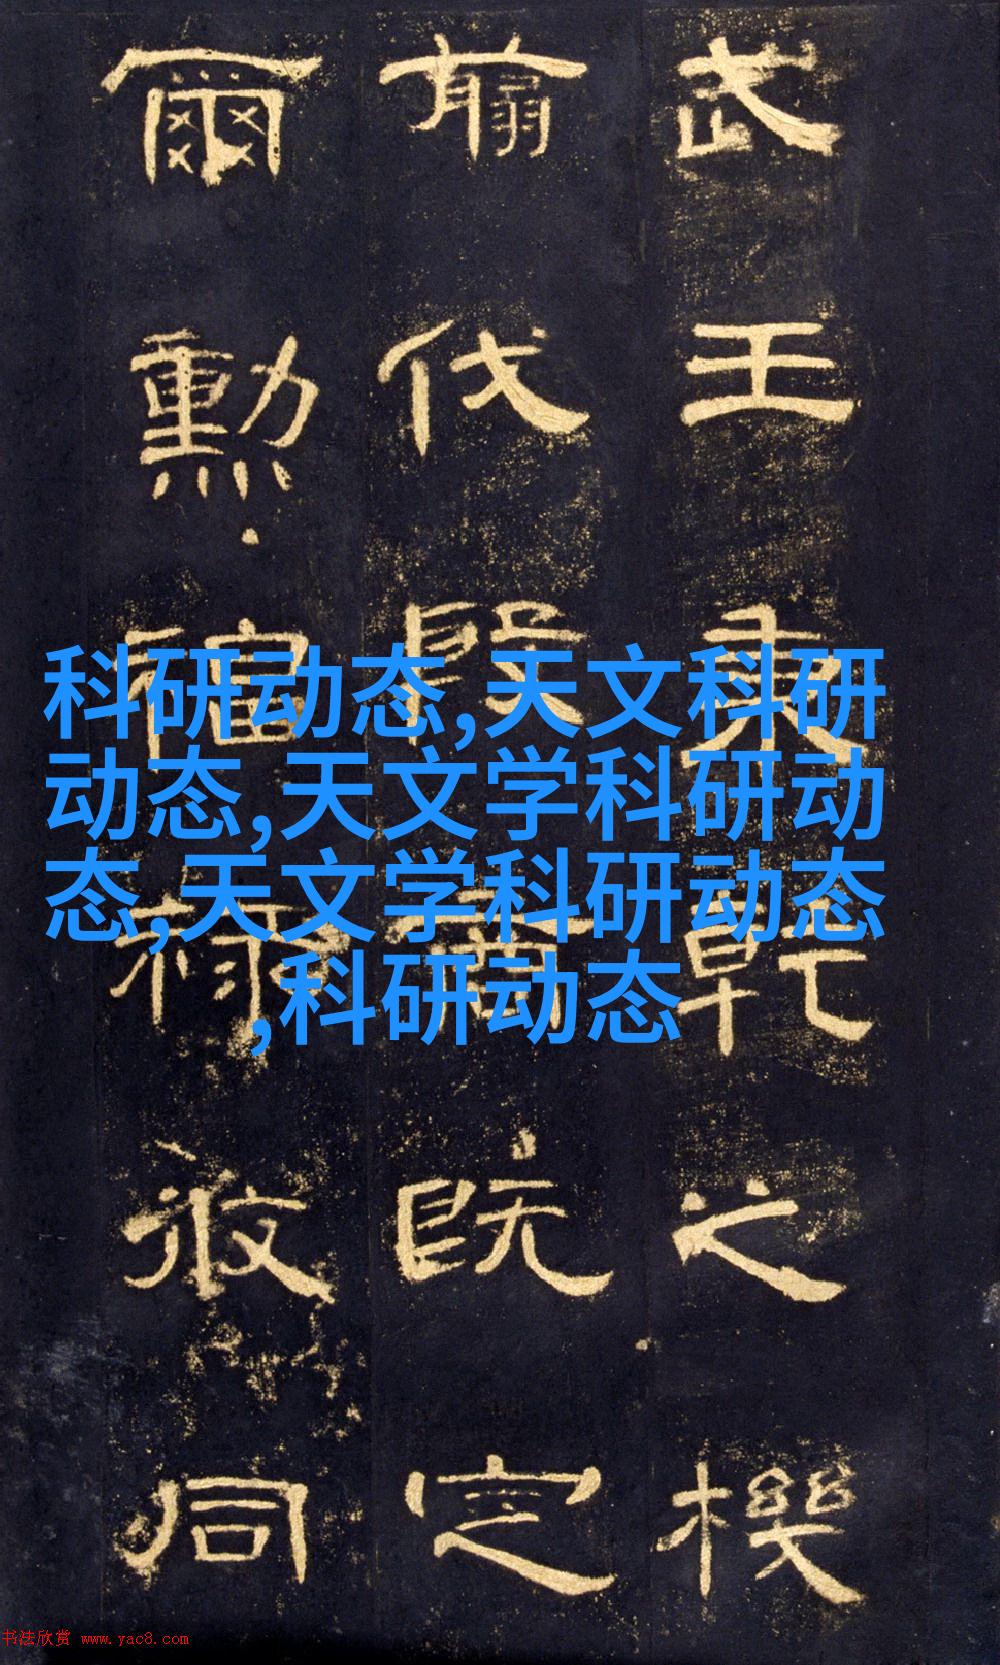 武王秉乾之機
翦伐殷商既定
爾勳福祿攸同
科研动态,天文科研
动态,天文学科研动
态,天文学科研动态
,科研动态
书法欣赏 www.yac8.com